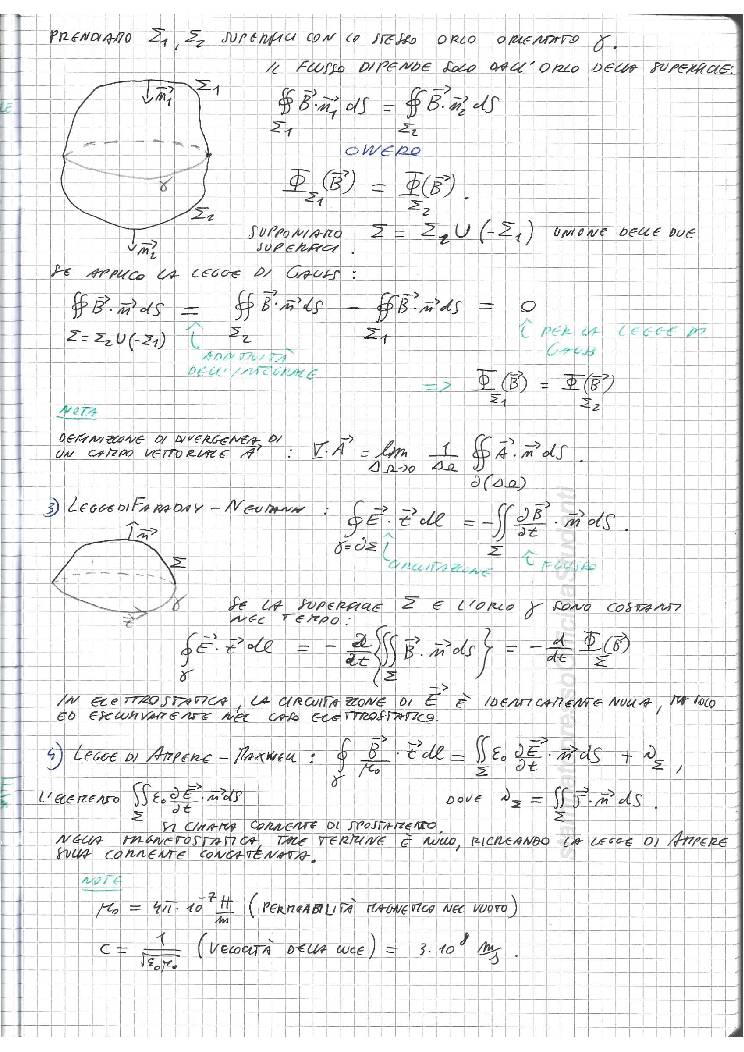 PRENDIAMO Σ₁, Σ₂ SUPERFICI CON LO STESSO ORLO ORIENTATO γ.
IL FLUSSO DIPENDE SOLO DALL'ORLO DELLA SUPERFICIE:
Σ₁
n⃗₁
γ
Σ₂
n⃗₂
∯_Σ₁ B⃗·n⃗₁ dS = ∯_Σ₂ B⃗·n⃗₂ dS
OVVERO
Φ_Σ₁(B⃗) = Φ_Σ₂(B⃗).
SUPPONIAMO Σ = Σ₂ ∪ (-Σ₁) UNIONE DELLE DUE
SUPERFICI.
SE APPLICO LA LEGGE DI GAUSS:
∯_{Σ=Σ₂∪(-Σ₁)} B⃗·n⃗ dS = ∯_Σ₂ B⃗·n⃗ dS - ∯_Σ₁ B⃗·n⃗ dS = 0
ADDITIVITÀ
DELL'INTEGRALE
PER LA LEGGE DI
GAUSS
=> Φ_Σ₁(B⃗) = Φ_Σ₂(B⃗)
NOTA
DEFINIZIONE DI DIVERGENZA DI
UN CAMPO VETTORIALE A⃗ : ∇·A⃗ = lim_{ΔΩ→0} 1/ΔΩ ∯_{∂(ΔΩ)} A⃗·n⃗ dS.
3) LEGGE DI FARADAY-NEUMANN : ∮_{γ=∂Σ} E⃗·t⃗ dl = -∬_Σ ∂B⃗/∂t · n⃗ dS.
CIRCUITAZIONE
FLUSSO
n⃗
Σ
γ
t⃗
SE LA SUPERFICIE Σ E L'ORLO γ SONO COSTANTI
NEL TEMPO:
∮_γ E⃗·t⃗ dl = - ∂/∂t {∬_Σ B⃗·n⃗ dS} = - d/dt Φ_Σ(B⃗)
IN ELETTROSTATICA, LA CIRCUITAZIONE DI E⃗ È IDENTICAMENTE NULLA, MA SOLO
ED ESCLUSIVAMENTE NEL CASO ELETTROSTATICO.
4) LEGGE DI AMPERE-MAXWELL : ∮_γ B⃗/μ₀ · t⃗ dl = ∬_Σ ε₀ ∂E⃗/∂t · n⃗ dS + i_Σ,
L'ELEMENTO ∬_Σ ε₀ ∂E⃗/∂t · n⃗ dS
DOVE i_Σ = ∬_Σ J⃗·n⃗ dS.
SI CHIAMA CORRENTE DI SPOSTAMENTO.
NELLA MAGNETOSTATICA, TALE TERMINE È NULLO, RICREANDO LA LEGGE DI AMPERE
SULLA CORRENTE CONCATENATA.
NOTE
μ₀ = 4π·10⁻⁷ H/m (PERMEABILITÀ MAGNETICA NEL VUOTO)
C = 1/√(ε₀μ₀) (VELOCITÀ DELLA LUCE) = 3·10⁸ m/s.